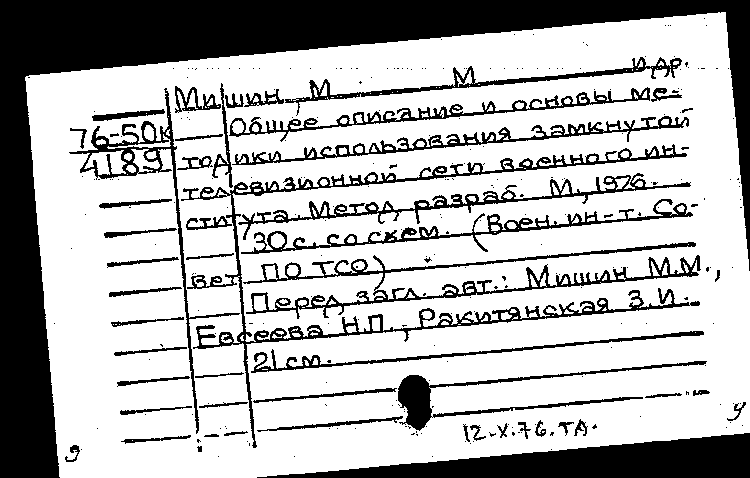 Мишин, М. М. и др.
76-50к Общее описание и основы ме-
4189 тодики использования замкнутой
телевизионной сети военного ин-
ститута. Метод. разраб. М., 1976.
30 с. со схем. (Воен. ин-т. Со-
вет ПО ТСО)
Перед загл. авт.: Мишин М.М.,
Евсеева Н.П., Ракитянская З.И.
21 см.
12.X.76.ТА.